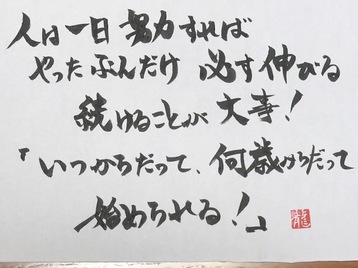 人は一日努力すれば
やったぶんだけ 必ず伸びる
続けることが大事!
「いつからだって、何歳からだって
始められる!」